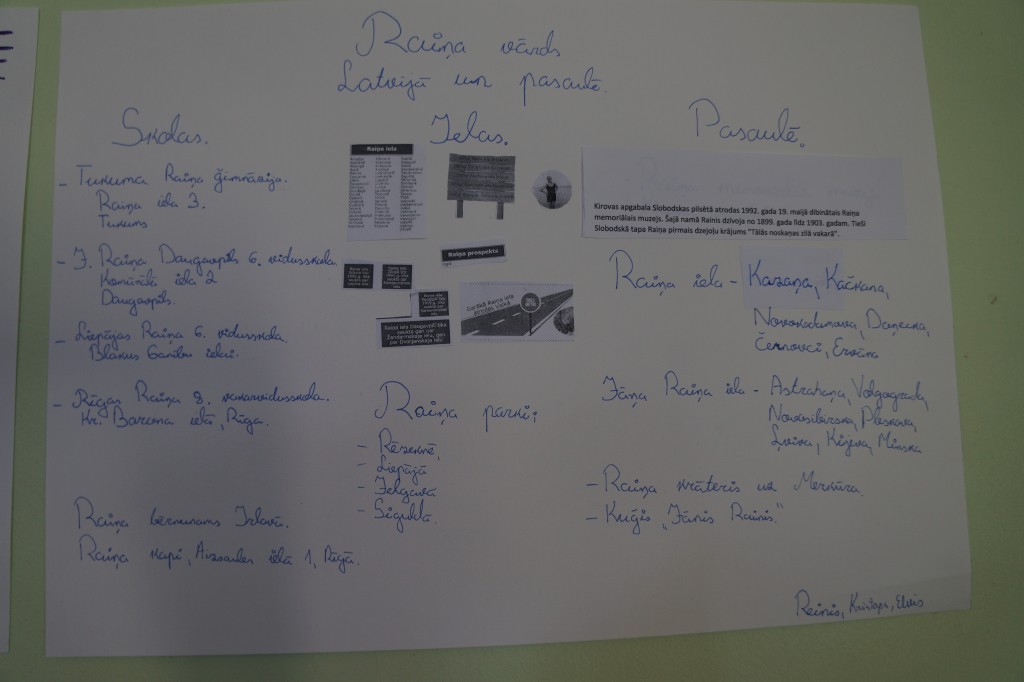 Raiņa vārds
Latvijā un pasaulē.
Skolas.
- Tukuma Raiņa ģimnāzija.
Raiņa iela 3.
Tukums
- J. Raiņa Daugavpils 6. vidusskola
Komunālā iela 2
Daugavpils.
- Liepājas Raiņa 6. vidusskola
Blakus Ganību ielai.
- Rīgas Raiņa 8. vakarvidusskola.
Kr. Barona ielā, Rīga.
Raiņa bērnunams Irlavā.
Raiņa kapi, Aizsaules ielā 1, Rīgā.
Ielas.
Raiņa iela
Raiņa prospekts
Garākā Raiņa iela
atrodas Valkā
Raiņa iela Daugavpilī tika
saukta gan par
Žandarmērijas ielu, gan
par Dvorjanskaja ielu
Raiņa parki;
- Rēzeknē,
- Liepājā
- Jelgavā
- Siguldā.
Pasaulē.
Kirovas apgabala Slobodskas pilsētā atrodas 1992. gada 19. maijā dibinātais Raiņa
memoriālais muzejs. Šajā namā Rainis dzīvoja no 1899. gada līdz 1903. gadam. Tieši
Slobodskā tapa Raiņa pirmais dzejoļu krājums "Tālās noskaņas zilā vakarā".
Raiņa iela - Kazaņa, Kačkana,
Doņecka,
Černovci, Ervāna
Jāņa Raiņa iela - Astrahaņa, Volgograda,
Novosibirska, Pleskava,
Ļvova, Kijeva, Minska
- Raiņa krāteris uz Merkūra.
- Kuģis „Jānis Rainis."
Reinis, Kristaps, Elvis